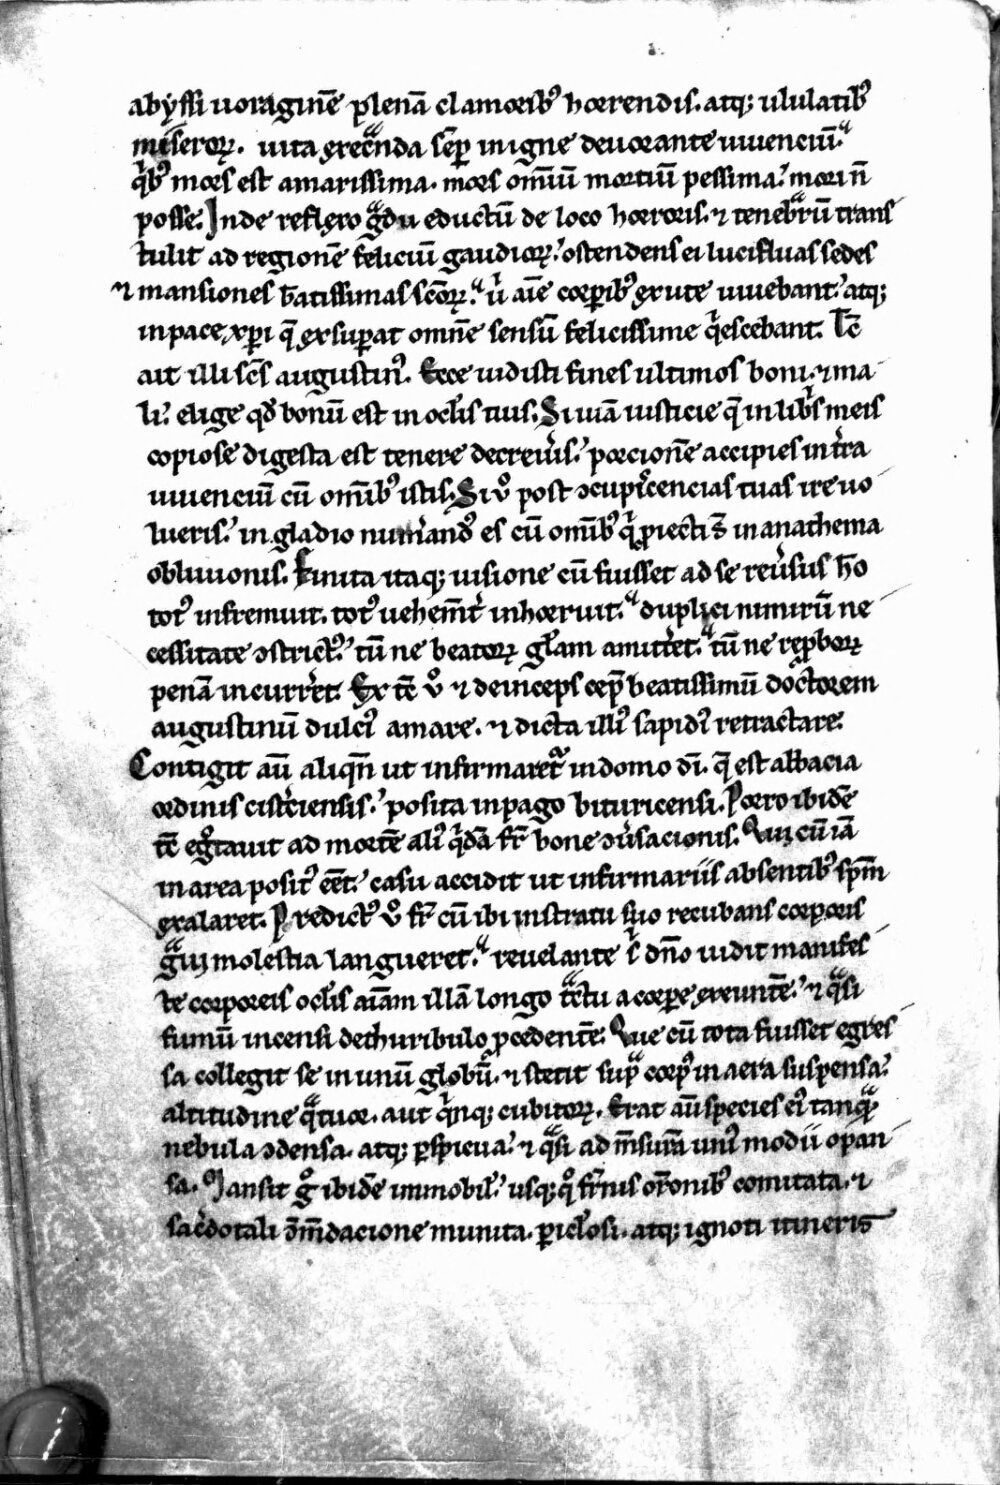 abyssi uoraginē plenā clamorib᷒ horrendis. atq; ululatib᷒
miseroꝝ. uita execͣnda sēp in igne deuorante uiuenciū.
qͥb᷒ mors est amarissima. mors om̄iū mortiū pessima. mori n̄
posse. Inde reflexo gͣdu eductū de loco horroris. ⁊ tenebͣrū trans
tulit ad regionē feliciū gaudioꝝ. ostendens ei lucifluas sedes
⁊ mansiones b̄atissimas scōꝝ. uͥ aīe corꝑib᷒ exute uiuebant. atq;
in pace xp̄i q̄ exsuꝑat omnē sensū felicissime qͥescebant. Tc̄
ait illi sc̄s augustin᷒. Ecce uidisti fines ultimos boni. ⁊ ma
li. elige qd̓ bonū est in ocl̓is tuis. Si uiā iusticie q̄ in libͥs meis
copiose digesta est tenere decreuͥis. porcionē accipies in t̓ra
uiuenciū cū om̄ib᷒ istis. Si uͦ post ↄcupiͥcencias tuas ire uo
lueris. in gladio num̓and᷒ es cū om̄ib᷒ qͥ ꝓiecti sͭ in anathema
obliuionis. Finita itaq; uisione cū fuisset ad se reu̓sus h̄o
tot᷒ infremuit. tot᷒ uehem̄t̓ inhorruit. duplici nimirū ne
cessitate ↄstrict᷒. tū ne beatoꝝ gl̓am amitt̓et. tū ne reꝓboꝝ
penā incurr̓et. Ex tc̄ uͦ ⁊ deinceps cep̄ beatissimū doctorem
augustinū dulci᷒ amare. ⁊ dicta illi᷒ sapidi᷒ retractare.
Contigit aū aliqn̄ ut infirmaret᷑ in domo dī. q̄ est abbacia
ordinis cist̓ciensis. posita in pago bituricensi. Porro ibidē
tc̄ egͦtauit ad mortē ali᷒ qͥdā fr̄ bone ↄu̓sacionis. Qui cū iā
in area posit᷒ eēt. casu accidit ut infirmariis absentib᷒ sp̄m
exalaret. Predict᷒ uͦ fr̄ cū ibi in stratu suo recubans corꝑoris
gͣui molestia langueret. reuelante sͥ dn̄o uidit manifes
te corporeis ocl̓is aīam illā longo tͣctu a corꝑe exeuntē. ⁊ qͣsi
fumū incensi de thuribulo ꝓcedentē. Que cū tota fuisset egres
sa collegit se in unū globū. ⁊ stetit supͣ corp᷒ in aera suspensa.
altitudine qͣtuor. aut qͥnq; cubitoꝝ. Erat aū species ei᷒ tanqͣꝫ
nebula ↄdensa. atq; ꝑspicua. ⁊ qͣsi ad m̄surā uni᷒ modii opan
sa. Mansit gͦ ibidē immobil̓. usq; qͦ fr̄nis or̄onib᷒ comitata. ⁊
sac̓dotali ↄm̄dacione munita. ꝑicl̓osi. atq; ignoti itineris